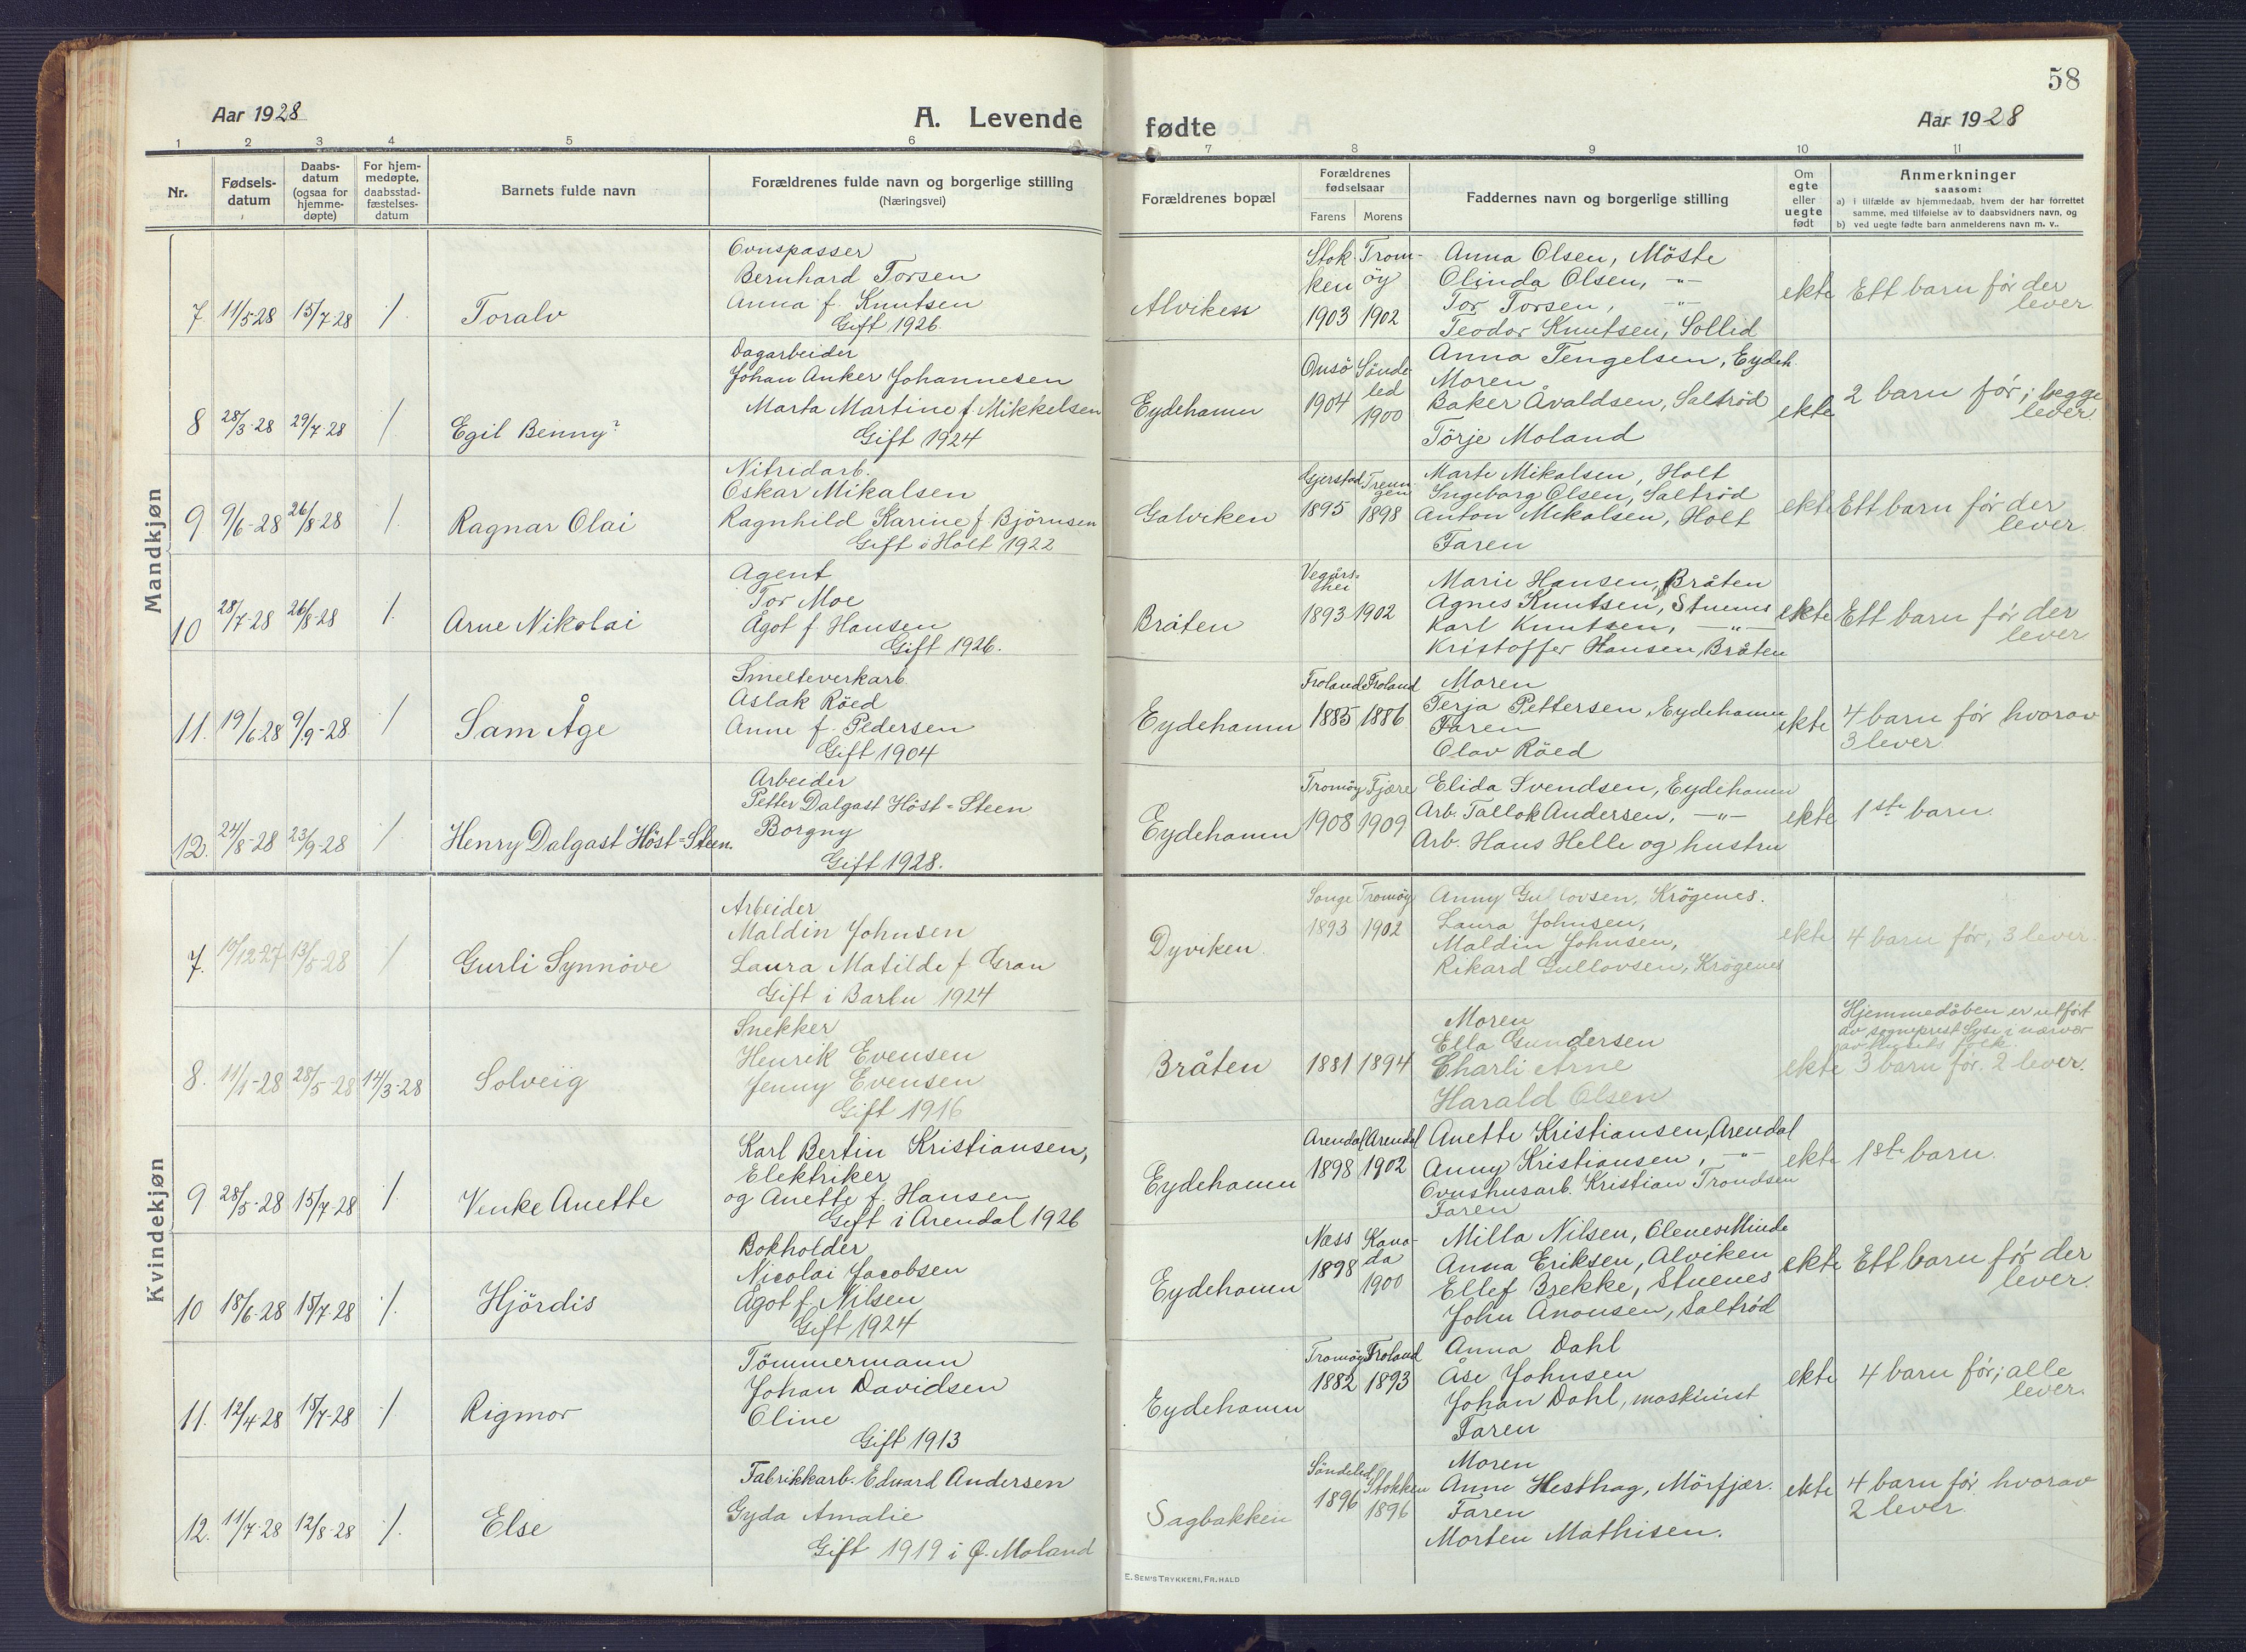 58
Aar 1928
A. Levende
fødte
Aar 1928
1 2 3 4 5 6 7 8 9 10 11
Nr.
Fødsels-
datum
Daabs-
datum
(ogsaa for
hjemme-
døpte)
For hjem-
medøpte,
daabsstad-
fæstelses-
datum
Barnets fulde navn
Forældrenes fulde navn og borgerlige stilling
(Næringsvei)
Forældrenes bopæl
Forældrenes
fødselsaar
Farens Morens
Faddernes navn og borgerlige stilling
Om
egte
eller
uegte
født
Anmerkninger
saasom:
a) i tilfælde av hjemmedaab, hvem der har forrettet
samme, med tilføielse av to daabsvidners navn, og
b) ved uegte fødte barn anmelderens navn m. v..
Mandkjøn
7 11/5-28 15/7-28 /. Toralv
Ovnspasser
Bernhard Torsen
Anna f. Knutsen
Gift 1926.
Alviken
Stok
ken
1903
Trom-
öy
1902
Anna Olsen, Möste
Olinda Olsen, -"-
Tor Torsen, -"-
Teodor Knutsen, Sollid
ekte
Ett barn før der
lever.
8 28/3-28 29/7-28 / Egil Benny?
Dagarbeider
Johan Anker Johannesen
Marta Martine f. Mikkelsen
Gift 1924
Eydehamn
Onsö
1904
Sönde
led
1900
Anna Tengelsen, Eydeh.
Moren
Baker Åvaldsen, Saltröd
Törje Moland
ekte
2 barn før; begge
lever.
9 9/6-28 26/8-28 /. Ragnar Olai
Nitridarb.
Oskar Mikalsen
Ragnhild Karine f. Björnsen
Gift i Holt 1922
Galviken
Gjerstad
1895
Treun-
gen
1898
Marte Mikalsen, Holt
Ingeborg Olsen, Saltröd
Anton Mikalsen, Holt
Faren
ekte
Ett barn før der
lever.
10 28/7-28 26/8-28 /. Arne Nikolai
Agent
Tor Moe
Ågot f. Hansen
Gift 1926.
Bråten
Vegårs-
hei
1893 1902
Marie Hansen, Bråten
Agnes Knutsen, Stuenes
Karl Knutsen, -"-
Kristoffer Hansen, Bråten
ekte
Ett barn før der
lever
11. 19/6 28 9/9-28 / Sam Åge
Smelteverkarb.
Aslak Röed
Anne f. Pedersen
Gift 1904
Eydehamn
Froland Froland
1885 1886
Moren
Terja Pettersen, Eydehamn
Faren
Olav Röed
ekte
4 barn før hvorav
3 lever
12. 24/8-28 23/9-28 / Henry Dalgast Höst=Steen.
Arbeider
Petter Dalgast Höst=Steen
Borgny
Gift 1928.
Eydehamn
Tromöy Fjære
1908 1909
Elida Svendsen, Eydehamn
Arb. Tallok Andersen, -"-
Arb. Hans Helle og hustru
ekte
1ste barn.
Kvindekjøn
7. 10/12-27 13/5-28 / Gurli Synnöve
Arbeider
Maldin Johnsen
Laura Matilde f. Gran
Gift i Barbu 1924
Dyviken
Songe Tromöy
1893 1902
Anny Gullovsen, Krögenes.
Laura Johnsen,
Maldin Johnsen,
Rikard Gullovsen, Krögenes
ekte
4 barn før, 3 lever.
8. 11/1-28 28/5-28 14/3-28 Solveig
Snekker
Henrik Evensen
Jenny Evensen
Gift 1916
Bråten
1881 1894
Moren
Ella Gundersen
Charli Arne
Harald Olsen
ekte
Hjemmedåben er utført
av sogneprest Syse i nærvær
av husets folk.
3 barn før. 2 lever.
9 28/5-28 15/7-28 /. Venke Anette
Karl Bertin Kristiansen,
Elektriker
og Anette f. Hansen
Gift i Arendal 1926
Eydehamn
Arendal Arendal
1898 1902
Anette Kristiansen, Arendal
Anny Kristiansen, -"-
Ovnshusarb. Kristian Trondsen
Faren
ekte
1ste barn.
10 18/6-28 15/7-28 /. Hjördis
Bokholder
Nicolai Jacobsen
Ågot f. Nilsen
Gift 1924
Eydehamn
Næss
1898
Kana-
da
1900
Milla Nilsen, Olenes Minde
Anna Eriksen, Alviken
Ellef Brekke, Stuenes
John Anonsen, Saltröd
ekte
Ett barn før der
lever.
11. 12/4-28 15/7-28 / Rigmor
Tömmermann
Johan Davidsen
Oline
Gift 1913
Eydehamn
Tromöy Froland
1882 1893
Anna Dahl
Åse Johnsen
Johan Dahl, maskinist
Faren
ekte
4 barn før; alle
lever.
12. 11/7-28 12/8-28 /. Else
Fabrikkarb. Edward Andersen
Gyda Amalie
Gift 1919 i Ø. Moland
Sagbakken
Söndeled
1896
Stokken
1896
Moren
Anne Hesthag, Mörfjær.
Faren
Morten Mathisen.
ekte
4 barn før hvorav
2 lever
E. Sem's Trykkeri, Fr.hald